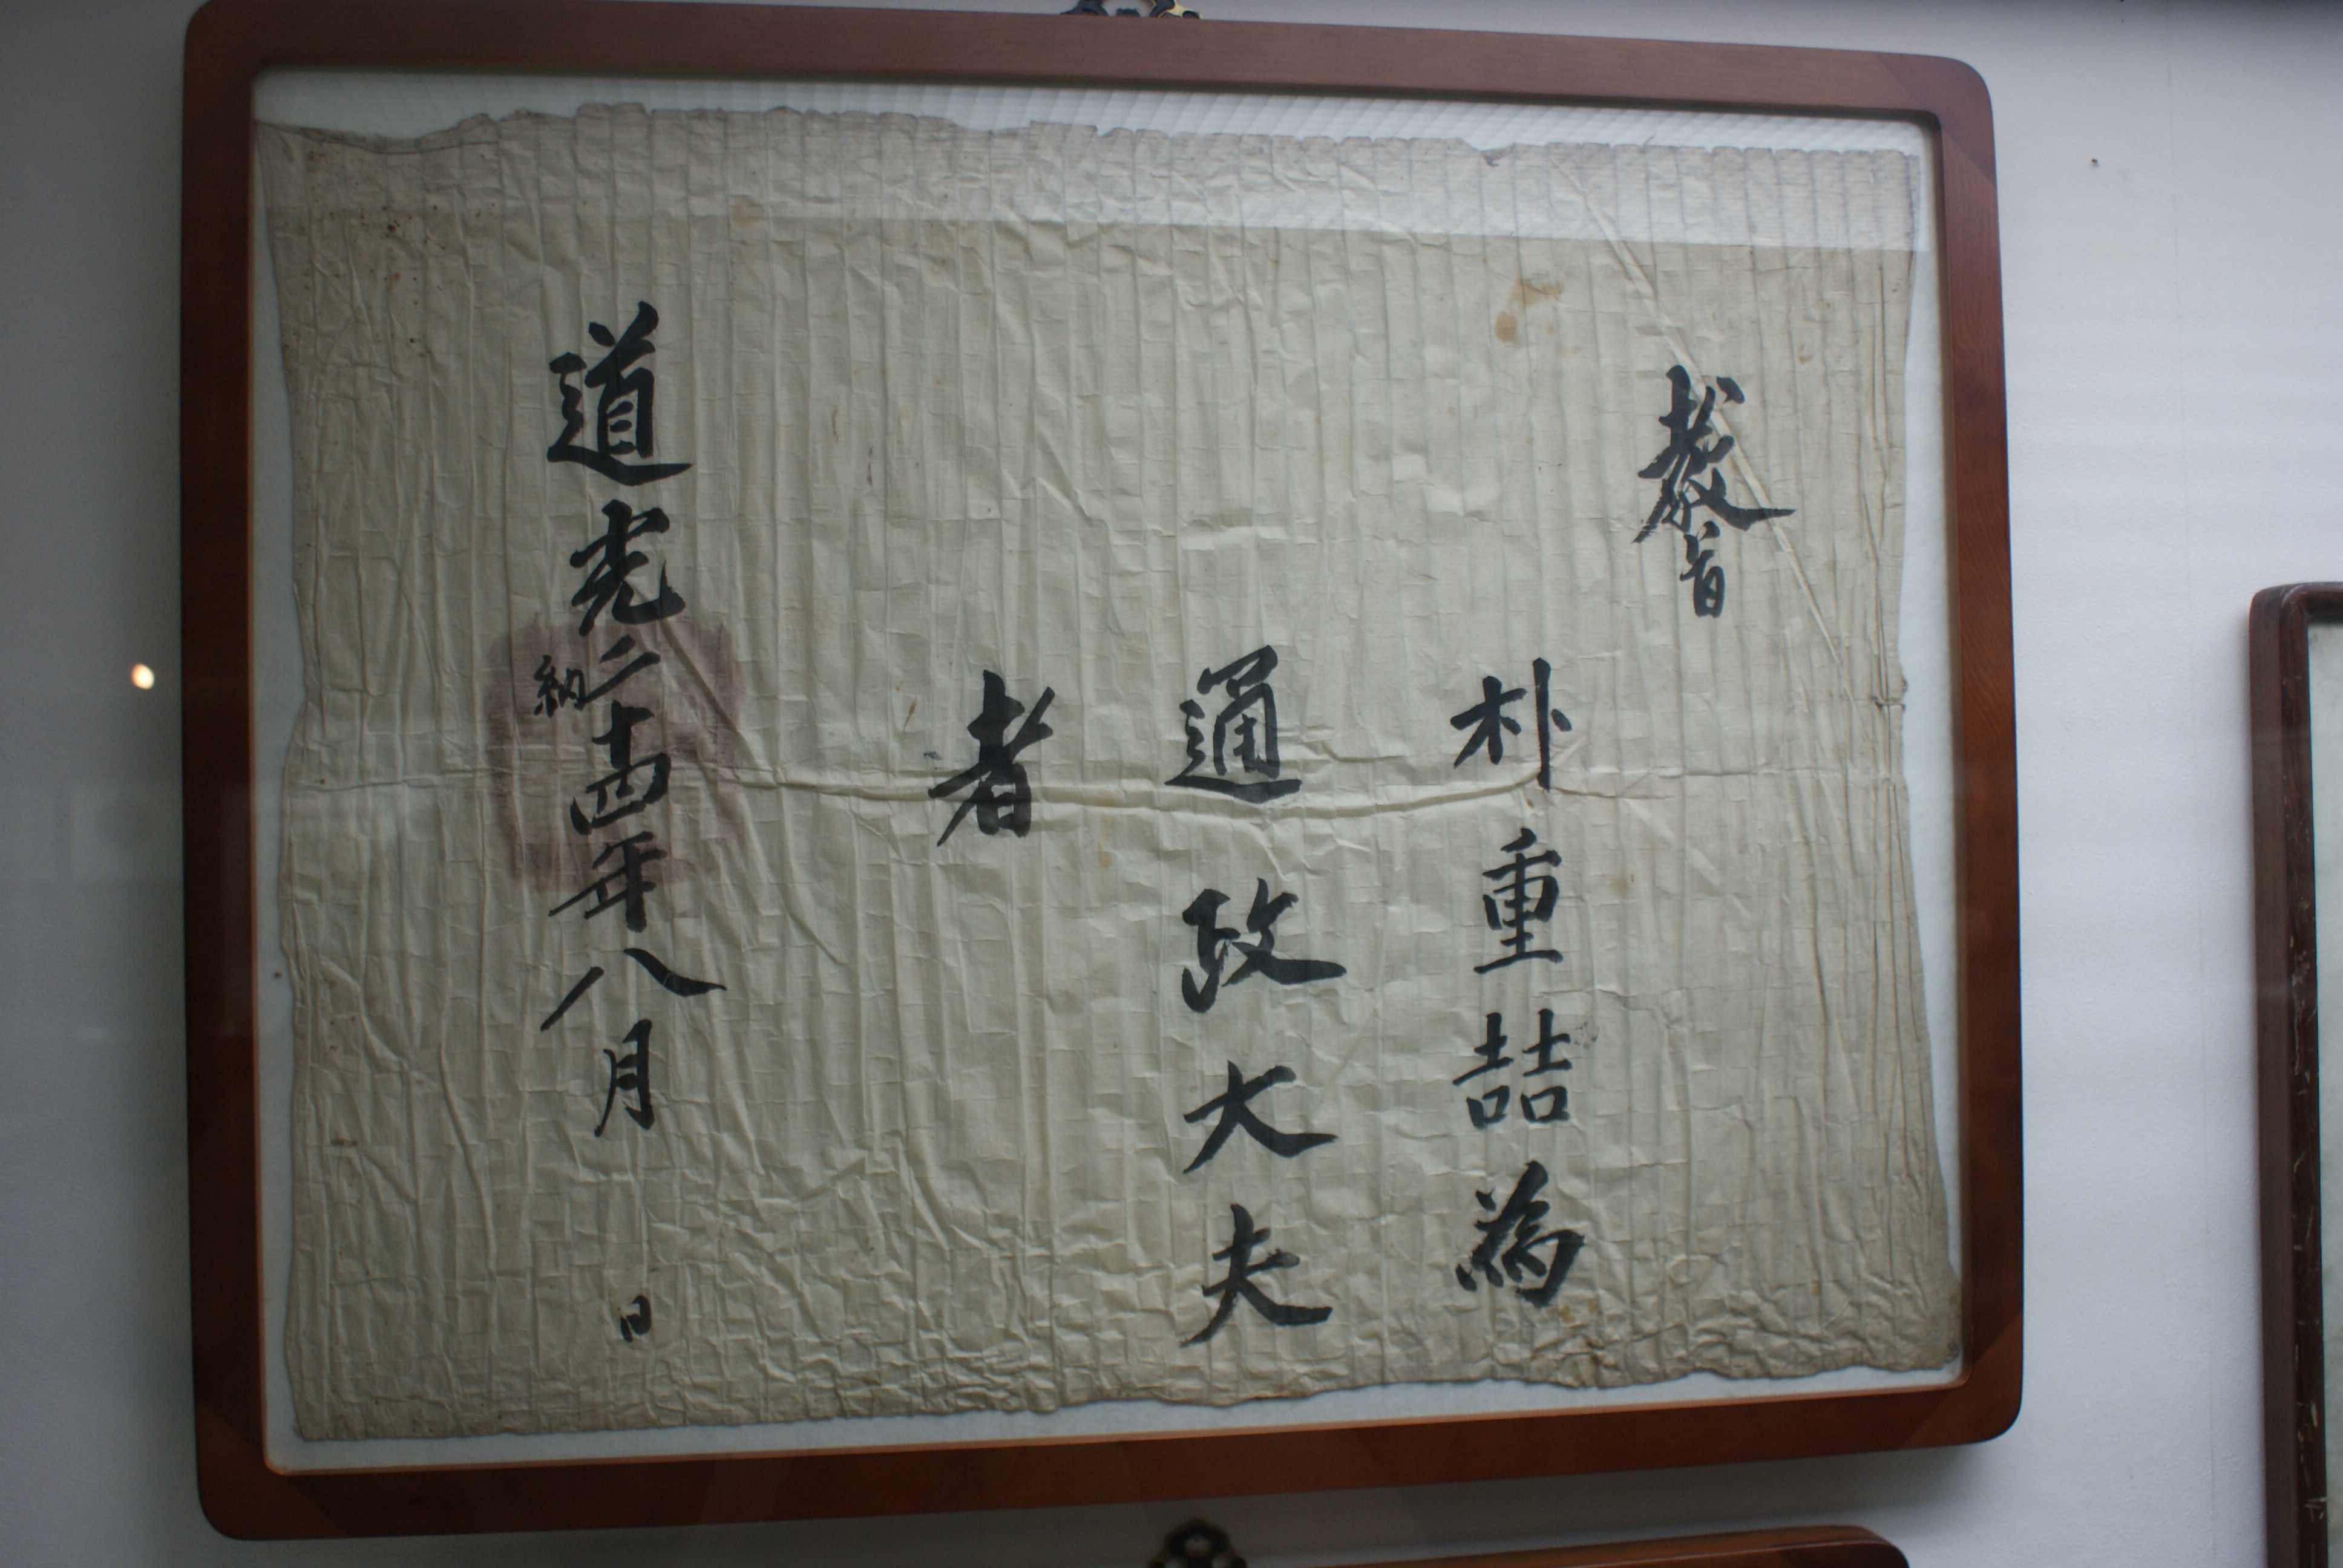 敎旨
朴重喆爲
通政大夫
者
道光二十四年八月 日
納